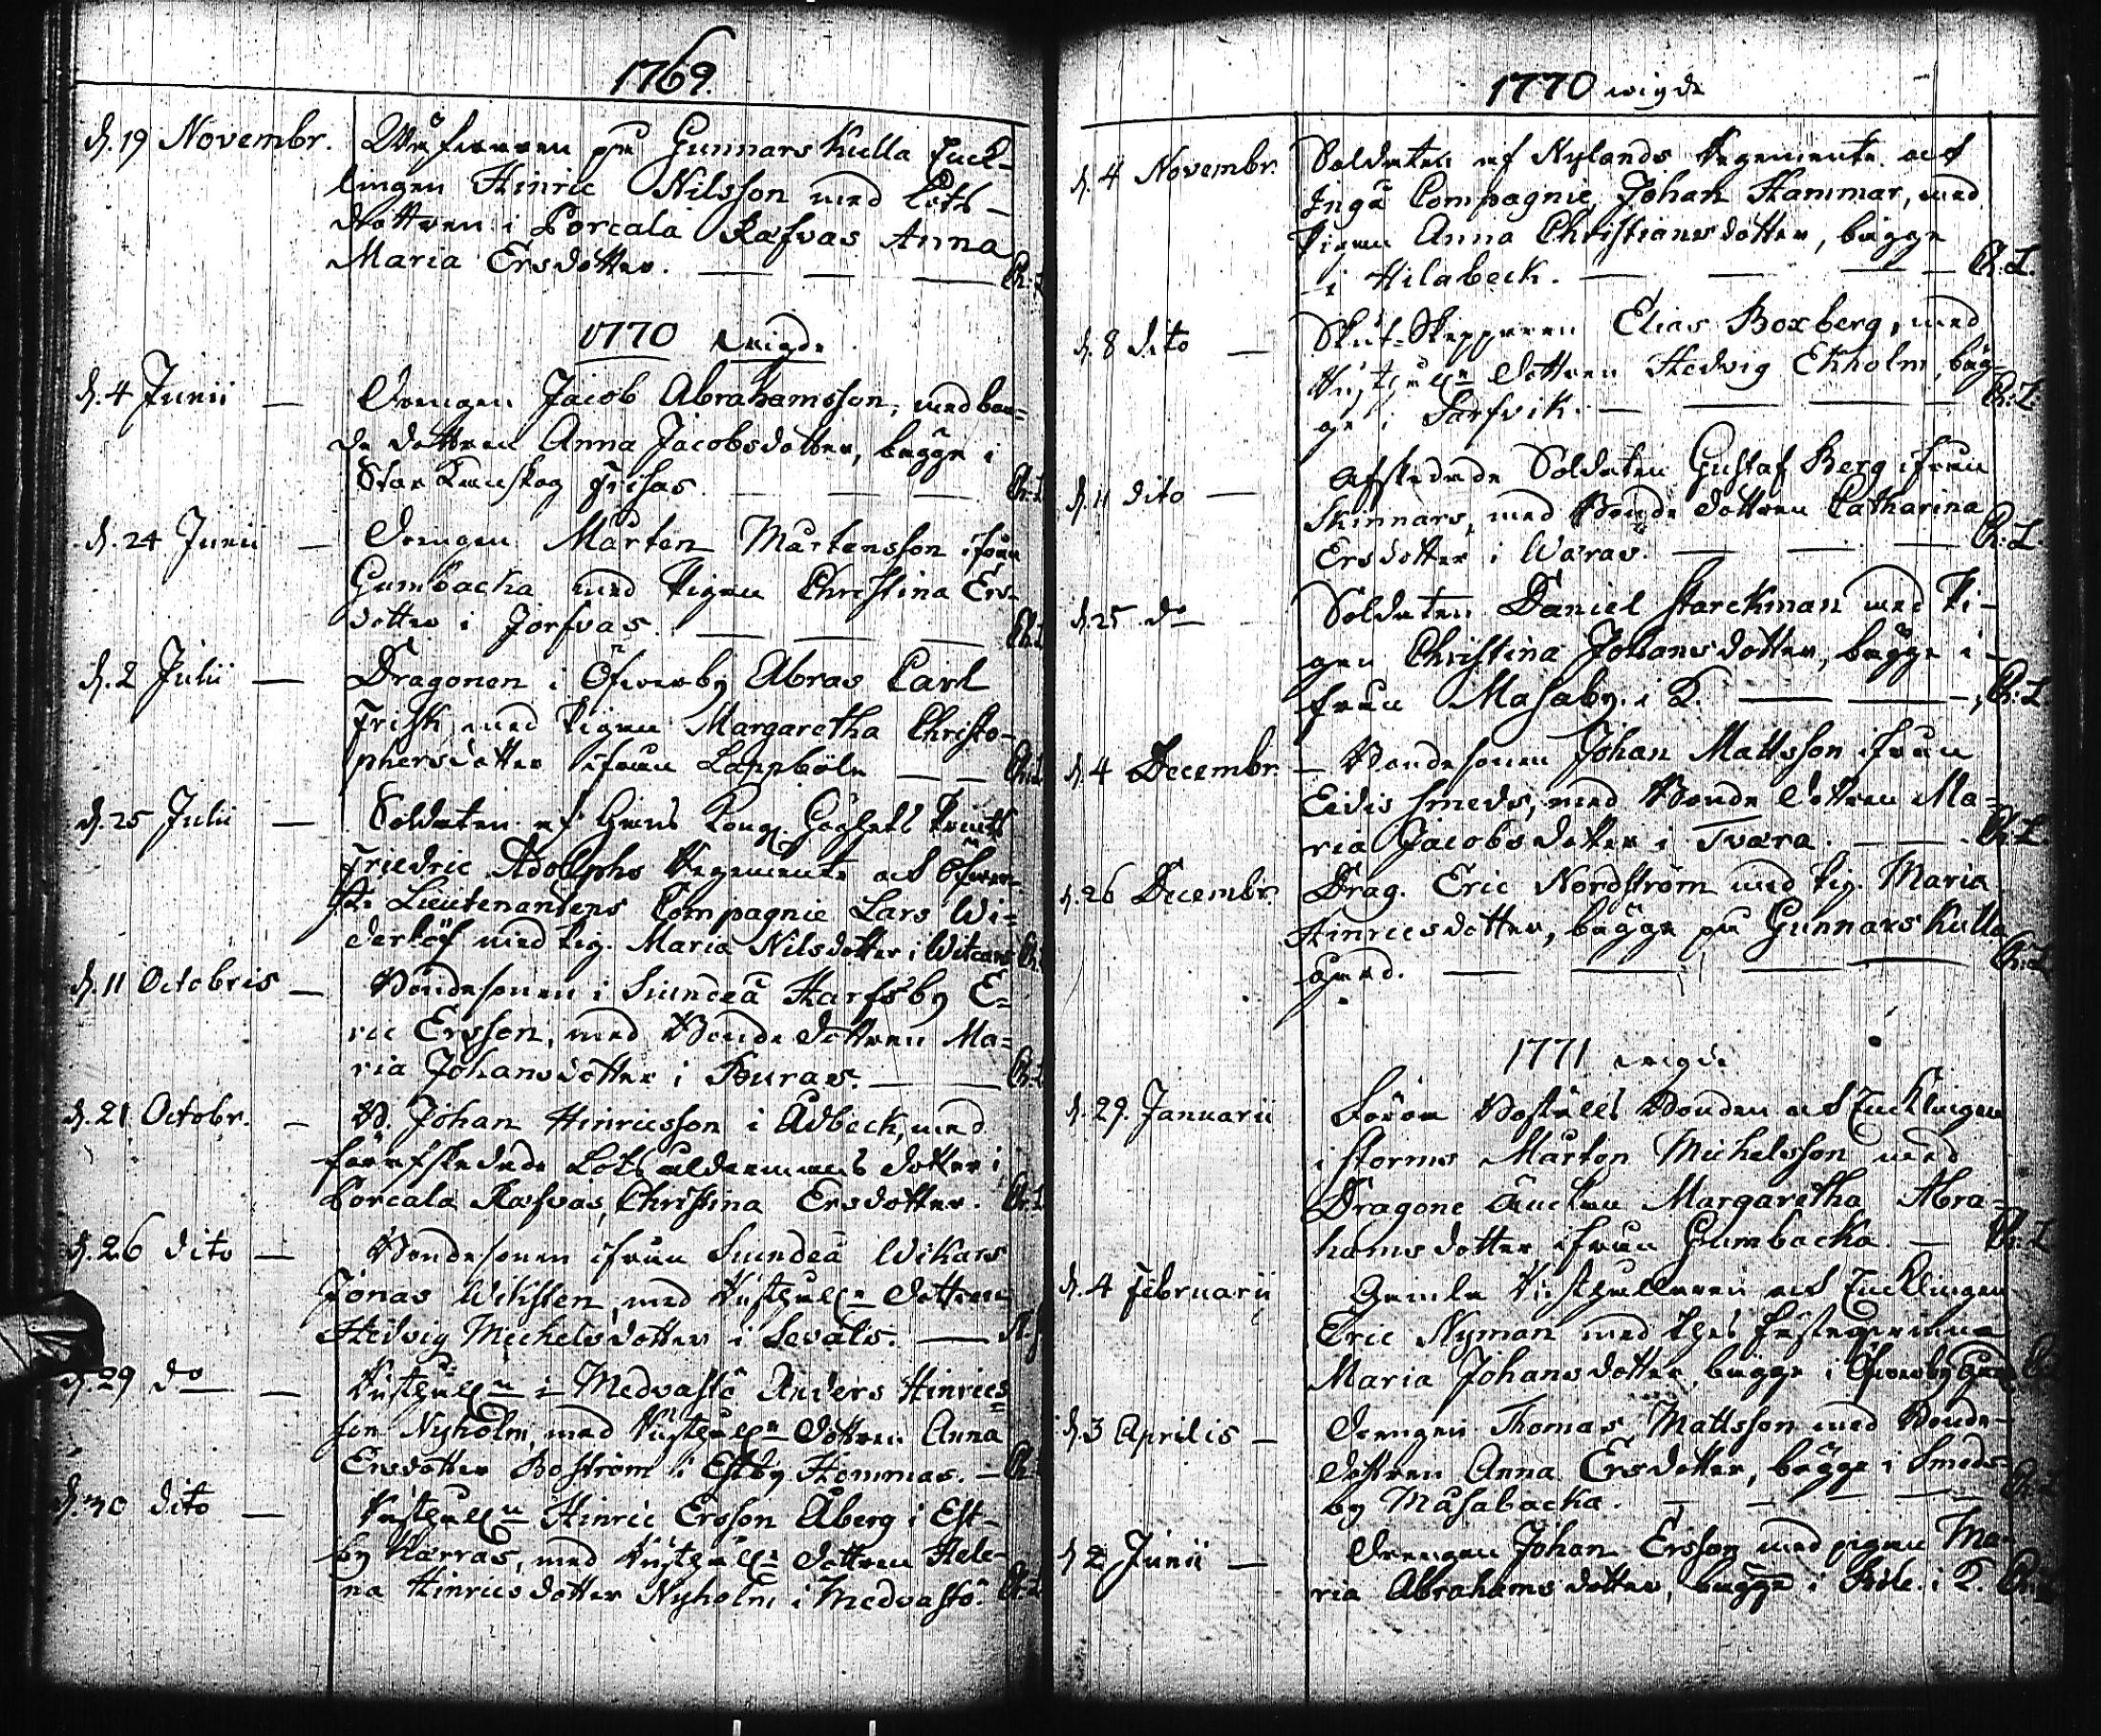 1769.
d. 19 Novembr. på Gunnars Kulla Enck-
lingen Hinric Nilsson med Lots-
dottren i Porcala Rafvas Anna
Maria Ersdotter. — — — Ch: L
1770 wigde
d. 4 Junii — Drengen Jacob Abrahamsson, med bon-
de dottren Anna Jacobsdotter, bägge i
Frisas — — — Ch: L
d. 24 Junii — Drengen Mårten Mårtensson ifrån
Gumbacka med Pigan Christina Ers-
dotter i Jorfvas. — — — Ch: L
d. 2 Julii — Dragonen i Öfverby Abras Carl
Frisk med Pigan Margaretha Christo-
phersdotter ifrån Lappböle — — Ch: L
d. 25 Julii — Soldaten af Hans Kong. Höghets Prints
Friedric Adolphs Regemente och Öfver-
ste Lieutenantens Compagnie Lars Wi-
derlöf med Pig. Maria Nilsdotter i Ch:
d. 11 Octobris — Bondesonen i Siundeå Harfsby E-
ric Ersson, med Bonde dottren Ma-
ria Johansdotter i Buras. — — Ch: L
d. 21 Octobr. — B. Johan Hinricsson i Adbeck, med
förafskedade Lots åldermans dotter i
Porcala Rafvas, Christina Ersdotter. Ch: L
d. 26 dito — Bondesonen ifrån Siundeå Wikars
Jonas Wikstén, med Rusthålls dottren
Hedvig Michelsdotter i Sevalis. —
d. 29 do — Rusthålln i Medvastö Anders Hinrics
son Nyholm, med Rusthålls dottren Anna
Ersdotter Boström i Estby Hommas. — Ch:
d. 30 dito — Rusthålln Hinric Ersson Åberg i Est-
by Harras, med Rusthålls dottren Hele-
na Hinricsdotter Nyholm i Medvastö. Ch: L
1770 wigde
d. 4 Novembr. Soldaten af Nylands Regemente och
Ingå Compagnie, Johan Hammar, med
Pigan Anna Christiansdotter, bägge
i Hilabeck. — — — Ch: L.
d. 8 dito — Skut-Skepparen Elias Boxberg, med
Rusthålls dottren Hedvig Ekholm, bäg-
ge i Sarfvik. — — — Ch: L.
d. 11 dito — Afskedade Soldaten Gustaf Berg ifrån
Skinnars, med Bonde dottren Catharina
Ersdotter i Waras. — — — Ch: L.
d. 25 do Soldaten Daniel Starckman med Pi-
gan Christina Johansdotter, bägge i-
från Masaby i K. — — — Ch: L.
d. 4 Decembr. — Bondesonen Johan Mattsson ifrån
Eidis Smeds, med Bonde dottren Ma-
ria Jacobsdotter i Tvära. — — Ch: L.
d. 26 Decembr. Drag. Eric Nordström med Pig. Maria
Hinricsdotter, bägge på Gunnars Kulla
gård. — — — — Ch: L
1771 wigde
d. 29. Januarii Boställs Bonden och Encklingen
i Storms Mårten Michelsson med
Dragone Enckan Margaretha Abra-
hamsdotter ifrån Gumbacka. — Ch: L
d. 4 Februarii Gamle Rusthållaren och Encklingen
Eric Nyman med thes fästeqvinna
Maria Johansdotter, bägge i Öfverby
d. 3 Aprilis — Drengen Thomas Mattsson med Bonde-
dottren Anna Ersdotter, bägge i Smeds-
by Måsabacka. — — — — Ch: L
d. 2 Junii — Drengen Johan Ersson med pigan Ma-
ria Abrahamsdotter, bägge i Böle i K. Ch: L